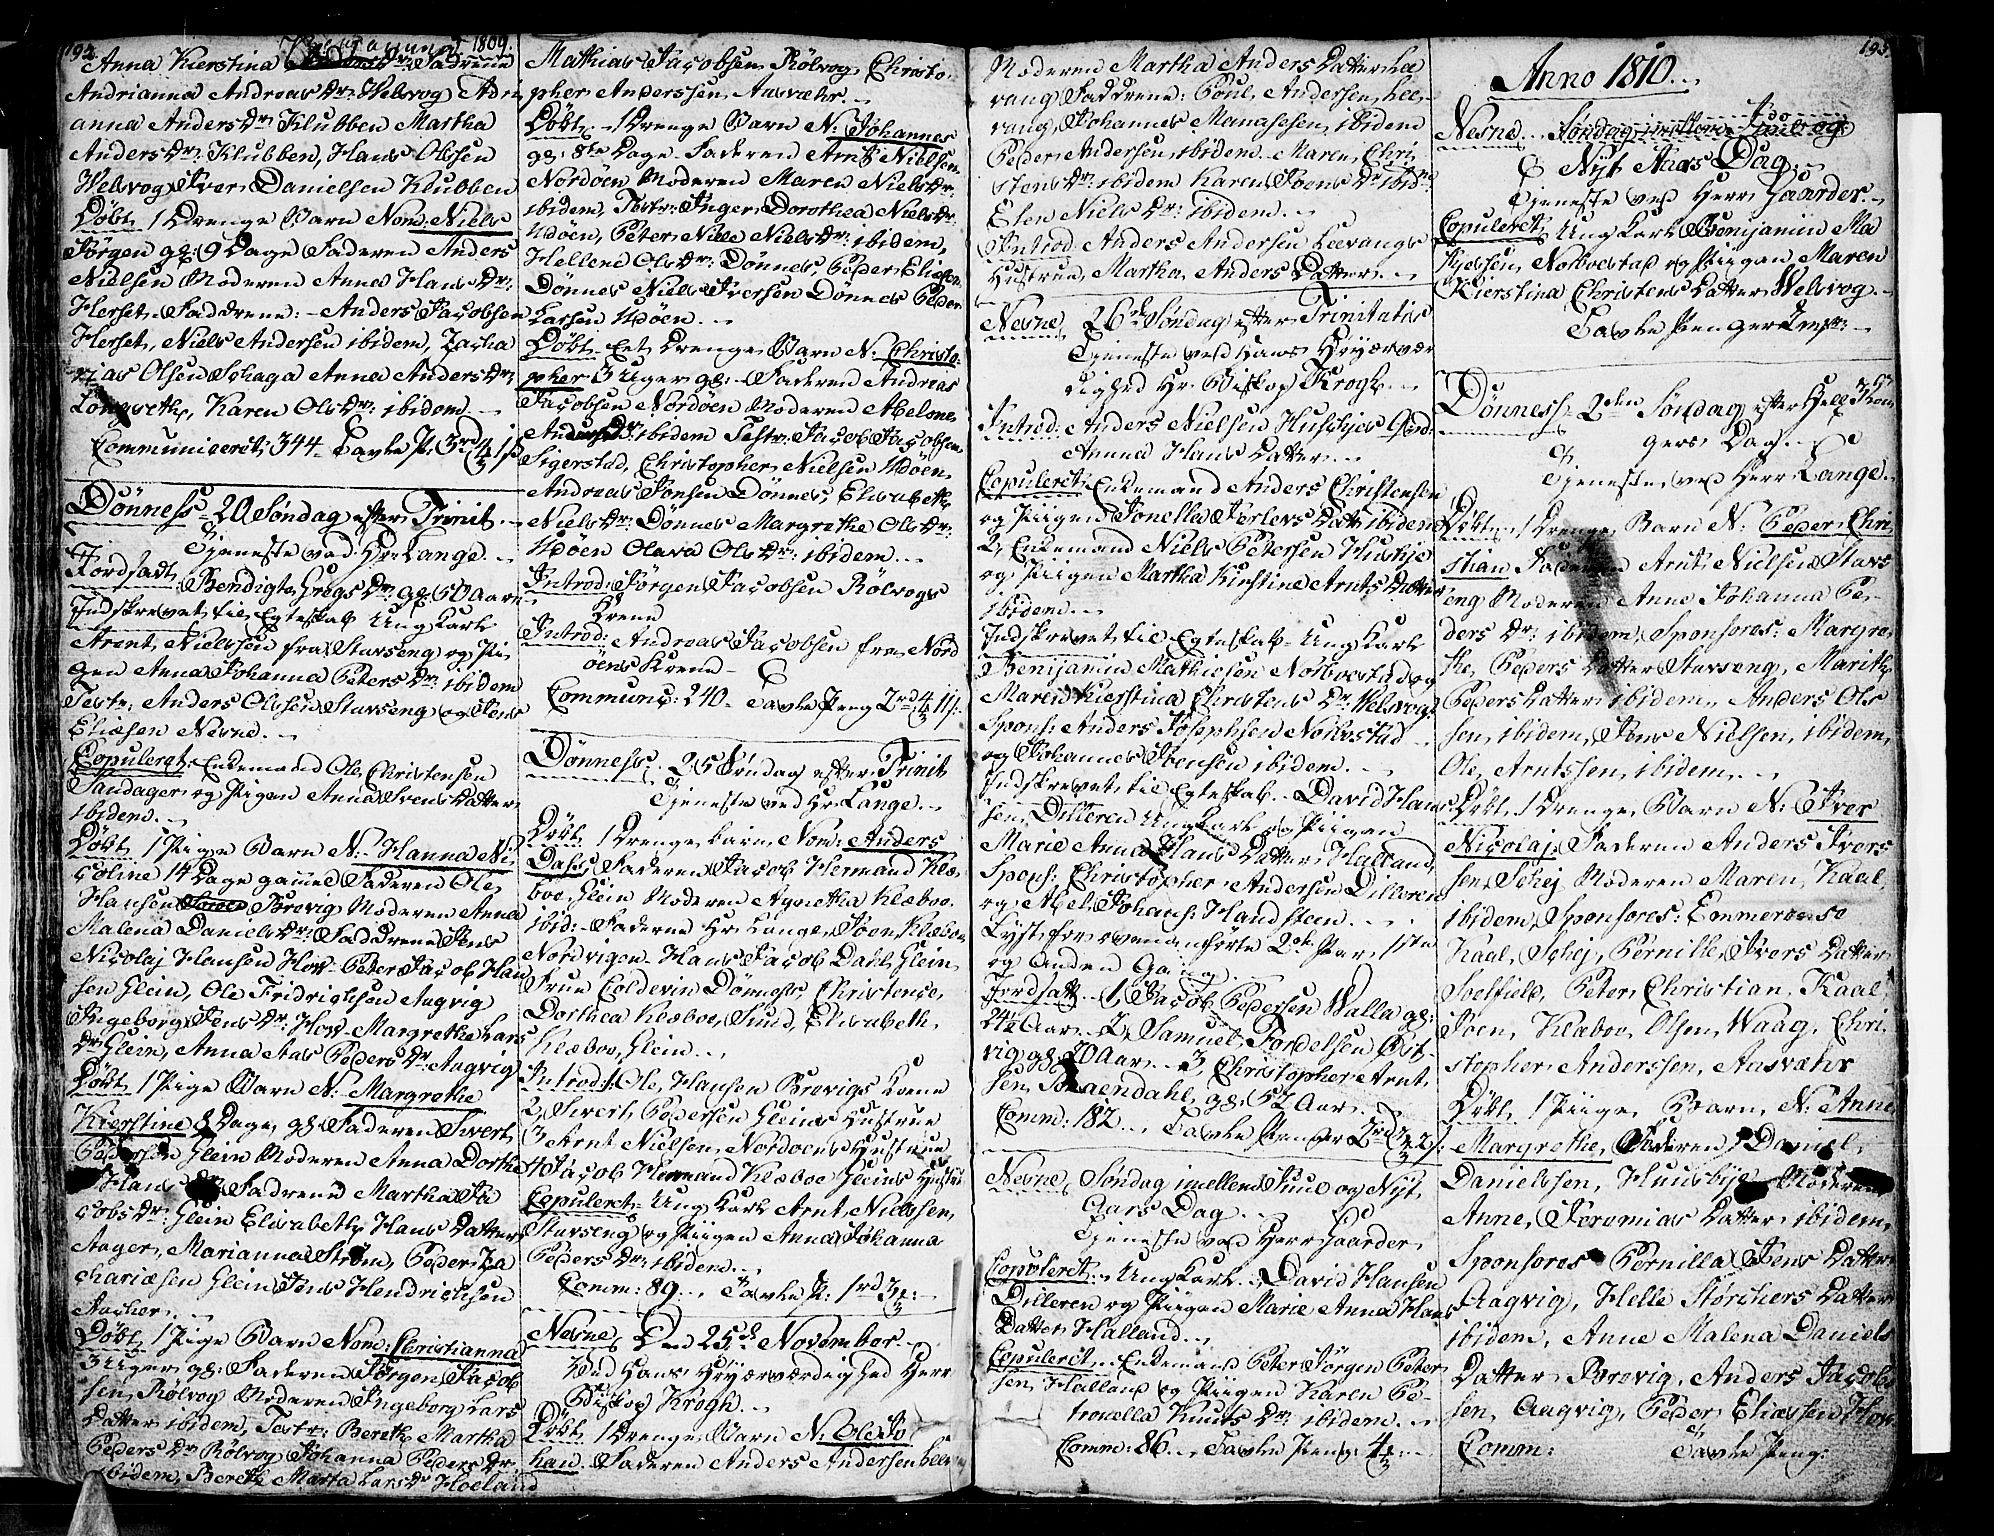 192
1809.
Anna Kierstina Fadrene
Andrianna Andreas Dr: Welsvog Adri
anna Anders Dr: Klubben Martha
Anders Dr: Klubben, Hans Olssen
Welsvog Iver Danielsen Klubben
Döbt 1 Drenge Barn Nom: Niels
Jörgen gl: 9 Dage Faderen Anders
Nielsen Moderen Anna Hans Dr:
Herset Faddrene: Anders Jacobsen
Herset, Niels Andersen ibidem, Zacha
rias Olsen Schaga Anna Anders Dr:
Longseth, Karen Ols Dr: ibidem
Communiceret 344 Tavle P: 3rd
Dönness 20 Söndag efter Trinit
Tjeneste ved Hr: Lange
Jordsadt Bendigte Gregs Dr: gl: 50 Aar
Indskrevet til Egteskab Ung Karl
Arent Nielssen fra Stavseng og Pi
gen Anna Johanna Peters Dr: ibidem
Test: Anders Olssen Stavseng og Jens
Eliæsen Nesne
Copuleret Enkemand Ole Christensen
Sandager og Pigen Anna Svens Datter
ibidem
Döbt 1 Pige Barn N: Hanna Ni
coline 14 Dage gammel Faderen Ole
Hansen Brovig Moderen Anna
Malena Daniels Dr: Faddrene Jens
Nicolaj Hansen Hov Peter Jacob Han
sen Glein, Ole Fridrichsen Aagvig
Ingeborg Jens Dr: Hov Margrethe Lars
Dr: Glein, Anna Aas Peders Dr: Aagvig
Döbt 1 Pige Barn N: Margrethe
Kierstine 8 Dage gl: Faderen Sivert
Pedersen Glein Moderen Anna Dorthe
Hans Fadrene Martha Ja
cobs Dr: Glein Elisabeth Hans Datter
Aager, Marianna Ström, Peder Za
chariæsen Glein Jens Hendrichsen
Aacher
Döbt 1 Pige Barn Nom: Christianna
3 Uger gl: Faderen Jörgen Jacob
sen Rölvog Moderen Ingeborg Lars
Datter ibidem, Test: Bereth Martha
Peders Dr: Rölvog Johanna Peders Dr:
ibidem, Bereth Marta Lars Dr: Hoeland
Mathias Jacobsen Rölvog Christo
pher Anderssen Aasværr
Döbt 1 Drenge Barn N: Johannes
gl: 8te Dage Faderen Arnt Nielsen
Nordöen Moderen Maren Niels Dr:
ibidem, Test: Inger Dorothea Niels Dr:
Udöen, Peter Nille Niels Dr: ibidem,
Hellene Ols Dr: Dönnes, Peder Eliæsen
Dönnes Niels Iversen Dönnes Peder
Larsen Udöen
Döbt Eet Drenge Barn N: Christo
pher 3 Uger gl: Faderen Andreas
Jacobsen Nordöen Moderen Abelone
Anders Dr: ibidem Test: Jacob Jacobsen
Sigerstad, Christopher Nielsen Udöen
Andreas Jonsen Dönnes, Elisabeth
Niels Dr: Dönnes Margrethe Ols Dr:
Udöen Olava Ols Dr: ibidem
Introd: Jörgen Jacobsen Rölvogs
Krene
Introd: Andreas Jacobsen fra Nord
öens Krene
Communc: 240 Tavle Peng 2rd
Dönness 25 Söndag efter Trinit
Tjeneste ved Hr: Lange
Döbt 1 Drenge barn Nom: Anders
Dass, Faderen Jacob Hermand Klæ
boe Glein Moderen Agnetha Klæboe
ibid: Faderne Hr: Lange, Joen Klæboe
Nordvigen Hans Jacob Dahl Glein
Frue Coldevin Dönness, Christence
Dorthea Klæboe, Sund, Elisabeth
Klæboe, Glein
Introd: Ole Hansen Brovigs Kone
2, Sivert Pedersen Gleins Hustrue
3 Arnt Nielsen Nordöens Hustrue
4 Jacob Hermand Klæboe Gleins Hustr
Copuleret Ung Karl Arnt Nielssen
Stavseng og Piigen Anna Johanna
Peders Dr: ibidem
Comm: 89 Tavle P: 1rd
Nesne Den 25de November
Ved Hans Höjærværdighed Herr
Biskop Krogh
Döbt 1 Drenge Barn N: Ole Jo
han Faderen Anders Andersen Lee
Moderen Martha Anders Datter Lee
vang Faddrene: Poul Andersen Lee
vang, Johannes Manassesen, ibidem
Peder Andersen ibidem Maren Chri
stens Dr: ibidem Karen Joens Dr: ibid
Elen Niels Dr: ibidem
Introd: Anders Andersen Leevangs
Hustrue, Martha Anders Datter
Nesne 26de Söndag efter Trinitatis
Tjeneste ved Hans Höjærvær
dighed Hr: Biskop Krogh
Introd: Anders Nielsen Huskjes
Anna Hans Datter
Copuleret Enkemand Anders Christensen
og Piigen Jonella Ferlevs Datt: ibidem
2, Enkemand Niels Petersen Huskje
og Piigen Martha Kirstine Arnts Datter
ibidem
Indskrevet til Egteskab Ung Karl
Benjamin Mathiesen Nolvestad og
Maren Kierstina Christens Dr: Welsvog
Spons: Anders Josephsen Nolvstad
og Johannes Joensen ibidem
Indskrevet til Egteskab David Han
sen Dilleren Ung Karl og Piigen
Marie Anna Hans Datter Halland
Spons: Christopher Andersen Dilleren
og Abel Johans: Handsteen
Lyst for ovenanförte 2de Par 1ste
og Anden Gang
Jordsatt 1, Jacob Pedersen Walla gl:
24½ Aar 2, Samuel Fordelsen Öst
vig gl: 20 Aar 3, Christopher Arnt
sen gl: 52 Aar
Comm: 182 Tavle Penger 2rd
Nesne Söndag imellem Juul og Nyt
Aars Dag
Tjeneste ved Herr Gaarder
Copuleret Ung Karl David Hansen
Dilleren og Piigen Marie Anna Hans
Datter Halland
Copuleret Enkemand Peter Jörgen Peter
sen Halland og Piigen Karen Pe
tronella Knuts Dr: ibidem
Comm: 86 Tavle Peng:
193
Anno 1810
Nesne Söndag imellem Juul og
Nyt Aars Dag
Tjeneste ved Herr Gaarder
Copuleret Ung Karl Benjamin Ma
thjessen Nolvestad og Piigen Maren
Kierstina Christens Datter Welsvog
Tavle Penger
Dönness 2den Söndag efter Hell 3 Kon
gers Dag
Tjeneste ved Herr Lange
Döbt 1 Drenge Barn N: Peder Chri
stian Faderen Arnt Nielsen Stavs
eng Moderen Anne Johanna Pe
ders Dr: ibidem Sponsores: Margre
the Peders Datter Stavseng, Marith
Peders Datter ibidem, Anders Ols
sen, ibidem, Jens Nielsen, ibidem,
Ole Arntssen, ibidem
Döbt 1 Drenge Barn N: Iver
Nicolaj Faderen Anders Ivers
sen Schej Moderen Maren Kaal
ibidem, Sponsores: Emmerentse
Kaal, Schej, Pernille Ivers Datter
Solfield, Peter Christian Kaal
Joen Klæboe Olsen Waag, Chri
stopher Anderssen, Aasværr
Döbt 1 Piige Barn N: Anne
Margrethe, Faderen Daniel
Danielssen, Huusbye Moderen
Anne Jeremias Datter ibidem
Sponsores Pernilla Jens Datter
Aagvig, Helle Störchers Datter
ibidem, Anne Malena Daniels
Datter Brovig, Anders Jacob
sen Aagvig, Peder Eliæssen Hov
Comm: Tavle Peng: